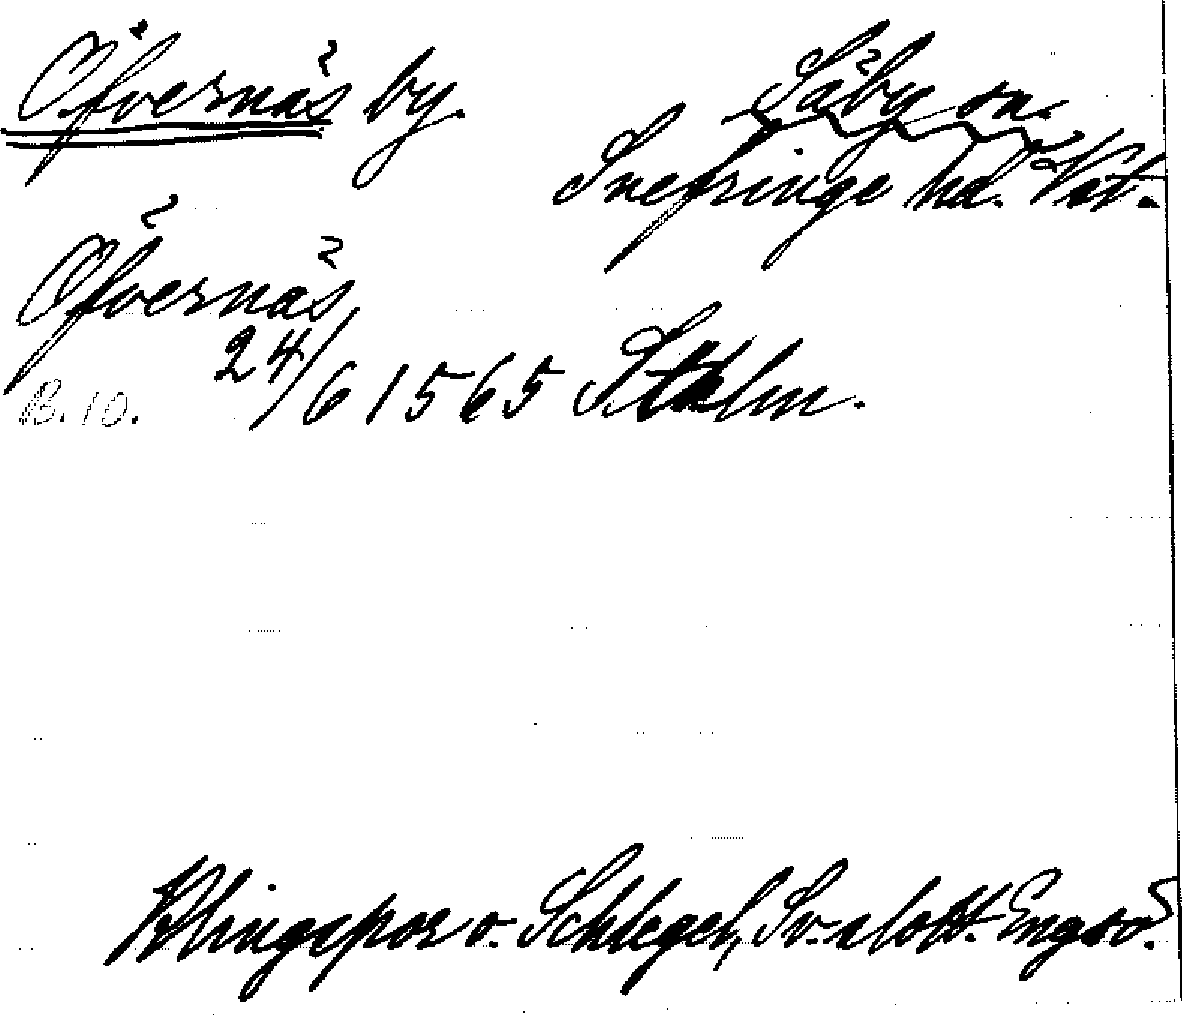 Öfvernäs by.
Säby sn.
Snefringe hd. Vst.
Öfvernäs
24/6 1565 Sthlm.
B. 10.
Klingspor o. Schlegel, Sv. slott. Engsö.